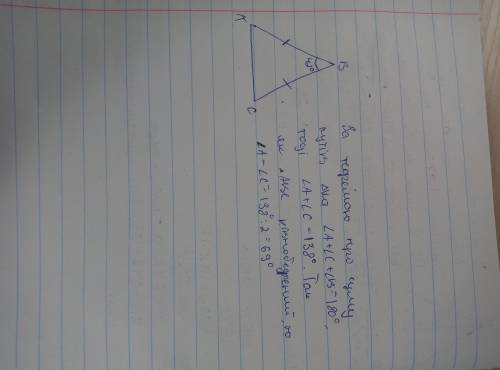 A
B
42°
C
За теоремою про суму
кутів тка ∠A+∠C+∠B=180°,
тоді ∠A+∠C=138°. Так
як △ABC рівнобедрений, то
∠A=∠C=138°:2=69°